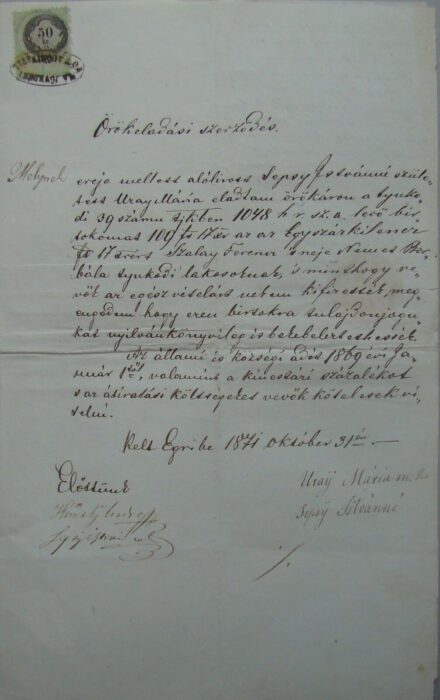 50
Örökeladási szerződés.
Melynek ereje mellett alólirott Sepsy Istvánné szüle-
tess Uray Mária eladtam örökáron a tyuko-
di 39 számu tjkben 1048 h r. sz. a. levő bir-
tokomat 109 ft 17 xr az az Egyszázkilencz
ft 17 xrért Szalay Ferencz s neje Nemes Bor-
bála tyukodi lakosoknak, s minthogy ve-
vők az egész vételárt nekem kifizették, meg-
engedem hogy ezen birtokra tulajdonjogu-
kat nyilvánkönyvileg is bekebeleztethessék.
Az állami és községi adót 1869 évi Ja-
nuár 1től, valamint a kincstári százalékot
s az átiratási költségeket vevők kötelesek vi-
selni.
Kelt Egribe 1871 október 31én.
Előttünk
Uray Mária
Sepsy Istvánné